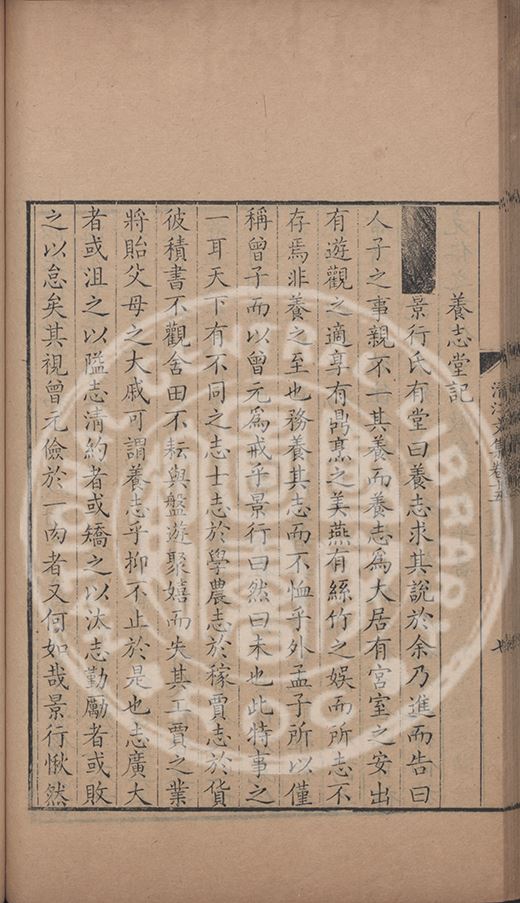 養志堂記
景行氏有堂曰養志求其說於余乃進而告曰
人子之事親不一其養而養志爲大居有宮室之安出
有遊觀之適享有鼎烹之美燕有絲竹之娛而所志不
存焉非養之至也務養其志而不恤乎外孟子所以僅
稱曾子而以曾元爲戒乎景行曰然曰未也此特事之
一耳天下有不同之志士志於學農志於稼賈志於貨
彼積書不觀舍田不耘與盤遊聚嬉而失其工賈之業
將貽父母之大戚可謂養志乎抑不止於是也志廣大
者或沮之以隘志清約者或矯之以汰志勤勵者或敗
之以怠矣其視曾元儉於一肉者又何如哉景行愀然